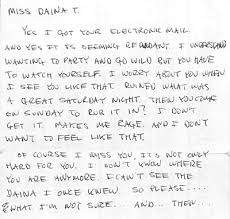 MISS DAINA T.
YES I GOT YOUR ELECTRONIC MAIL
AND YES IT IS SEEMING I UNDERSTAND
WANTING TO PARTY AND GO WILD BUT YOU HAVE
TO WATCH YOURSELF. I WORRY ABOUT YOU WHEN
I SEE YOU LIKE THAT RUINED WHAT WAS
A GREAT SATURDAY NIGHT. THEN YOU COME
ON SUNDAY TO RUB IT IN? I DON'T
GET IT. MAKES ME RAGE. AND I DON'T
WANT TO FEEL LIKE THAT.
OF COURSE I MISS YOU, IT'S NOT ONLY
HARD FOR YOU. I DON'T KNOW WHERE
YOU ARE ANYMORE. I CAN'T SEE THE
DAINA I ONCE KNEW. SO PLEASE.....
& WHAT I'M NOT SURE... AND... THEN...